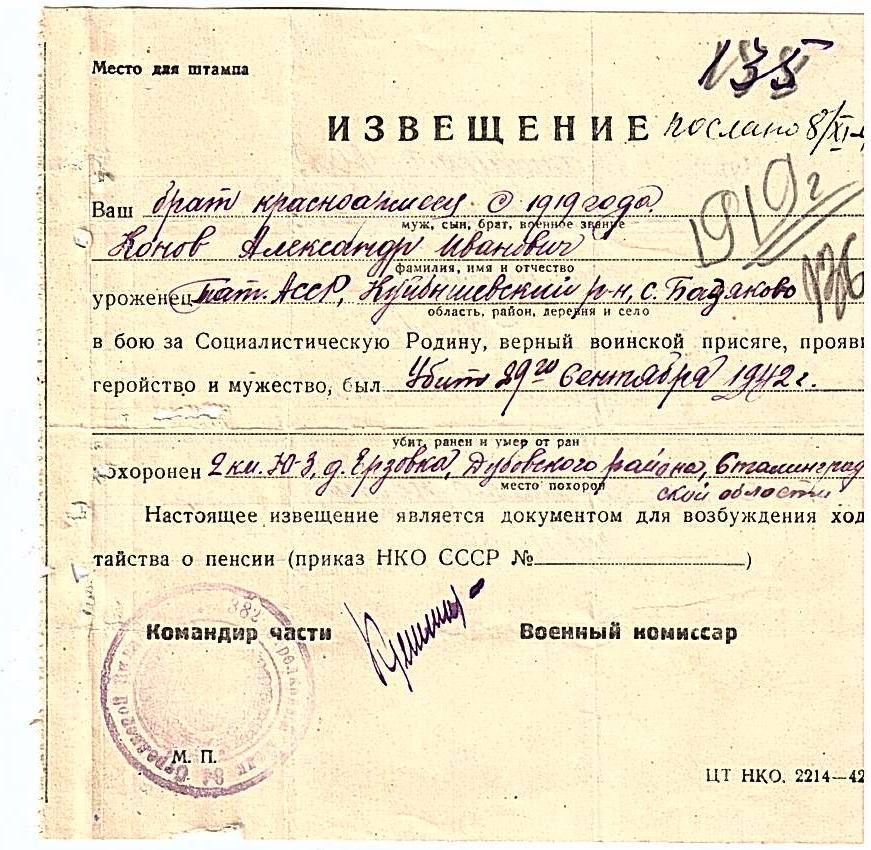 Место для штампа
135
ИЗВЕЩЕНИЕ послано 8/XI-4
1919 г
Ваш брат красноармеец с 1919 года
муж, сын, брат, военное звание
Конов Александр Иванович
фамилия, имя и отчество
136
уроженец Тат. АССР, Куйбышевский р-н, с. Бадяково
область, район, деревня и село
в бою за Социалистическую Родину, верный воинской присяге, прояви
геройство и мужество, был Убит 29го Сентября 1942 г.
убит, ранен и умер от ран
похоронен 2 км. Ю-З, д. Ерзовка, Дубовского района, Сталинград
место похорон ской области
Настоящее извещение является документом для возбуждения ход
тайства о пенсии (приказ НКО СССР № )
382
Командир части Военный комиссар
М. П.
ЦТ НКО. 2214—42